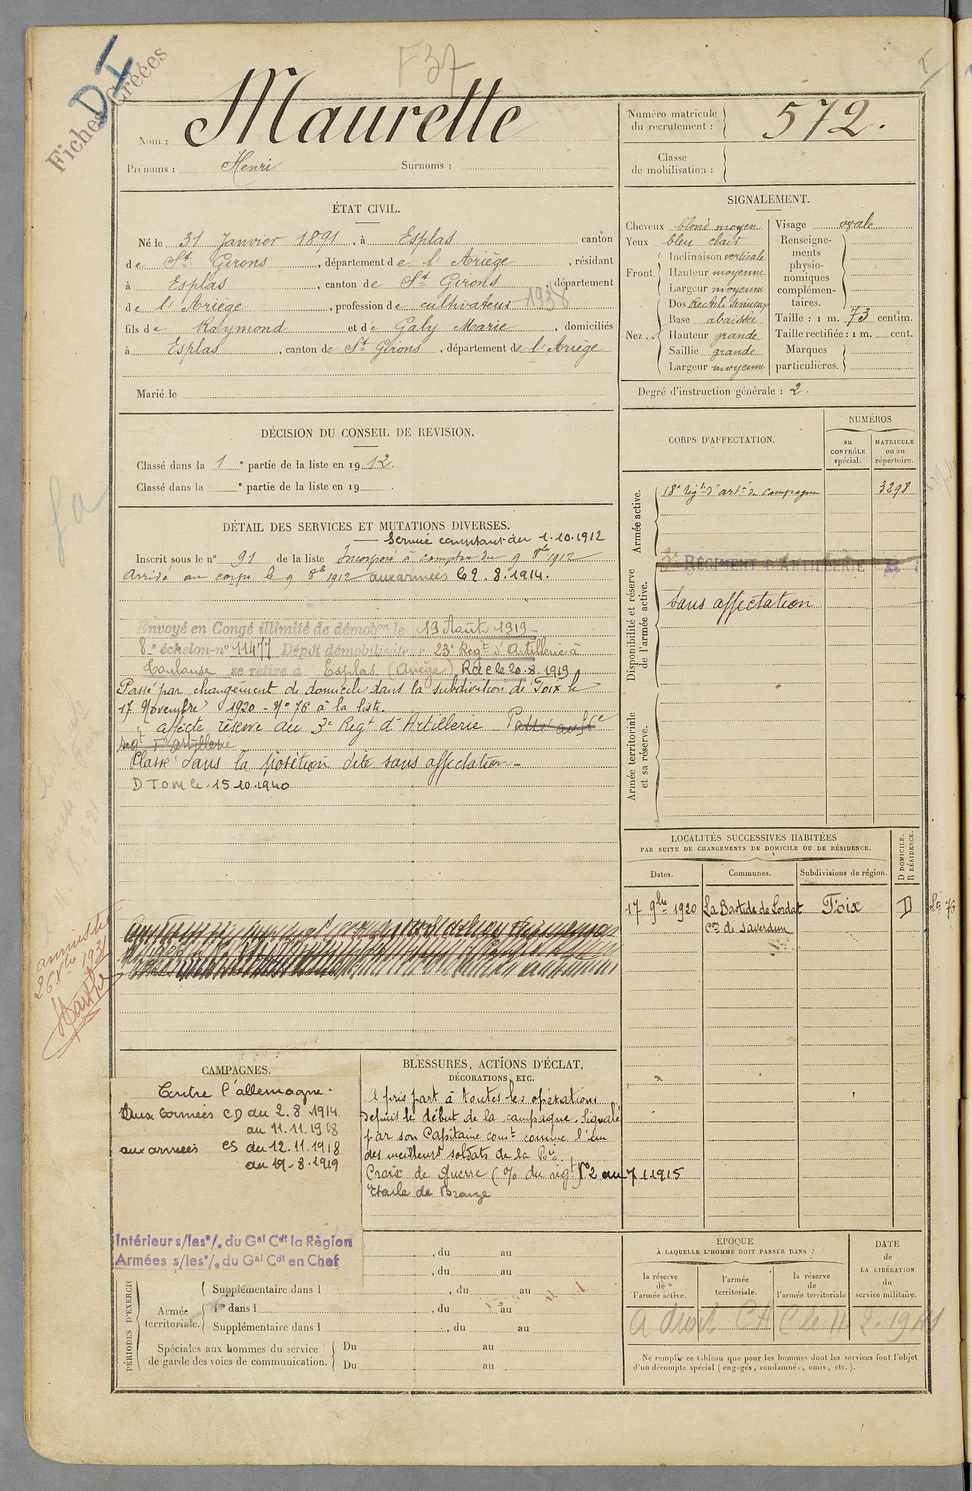 F37
DI
Fiches Créées
Nom : Maurette
Prénoms : Henri Surnoms :
Numéro matricule
du recrutement : 572.
Classe
de mobilisation :
ÉTAT CIVIL.
Né le 31 Janvier 1891, à Esplas canton
de St Girons, département de l'Ariège, résidant
à Esplas, canton de St Girons, département
de l'Ariège, profession de cultivateur 1938
fils de Raymond et de Galy Marie, domiciliés
à Esplas, canton de St Girons, département de l'Ariège
Marié le
SIGNALEMENT.
Cheveux blond moyen
Yeux bleu clair
Front. Inclinaison verticale
Hauteur moyenne
Largeur moyenne
Nez... Dos Rectil. Sinueux
Base abaissée
Hauteur grande
Saillie grande
Largeur moyenne
Visage ovale
Renseigne-
ments
physio-
nomiques
complémen-
taires.
Taille : 1 m. 73 centim.
Taille rectifiée : 1 m. cent.
Marques
particulières.
Degré d'instruction générale : 2.
DÉCISION DU CONSEIL DE REVISION.
Classé dans la 1e partie de la liste en 1912.
Classé dans la e partie de la liste en 19
DÉTAIL DES SERVICES ET MUTATIONS DIVERSES.
Service comptant du 1.10.1912
Inscrit sous le n° 91 de la liste Incorporé à compter du 9 8bre 1912
Arrivé au corps le 9 8bre 1912 aux armées le 2.8.1914.
Envoyé en Congé illimité de démobon le 19 Août 1919
8e échelon n° 11477 Dépôt démobilisateur 23e Regt d'Artillerie à
Toulouse se retire à Esplas (Ariège) Rdc le 20.8.1919
Passé par changement de domicile dans la subdivision de Foix le
17 Novembre 1920 - N° 76 à la liste.
affecté réserve au 3e Regt d'Artillerie Passé au
regt d'artillerie
Classé dans la position dite sans affectation.
DTOM le 15.10.1940
amnistié
1931
CORPS D'AFFECTATION.
NUMÉROS
au
CONTRÔLE
spécial.
MATRICULE
ou au
répertoire.
Armée active.
18e régt d'artie de campagne 3298
Disponibilité et réserve
de l'armée active.
RÉGIMENT D'ARTILLERIE
Sans affectation
Armée territoriale
et sa réserve.
LOCALITÉS SUCCESSIVES HABITÉES
PAR SUITE DE CHANGEMENTS DE DOMICILE OU DE RÉSIDENCE.
Dates.
Communes.
Subdivisions de région.
D DOMICILE.
R RÉSIDENCE.
17 9bre 1920 La Bastide de Lordat Foix D
con de Saverdun
CAMPAGNES.
Contre l'allemagne.
Aux armées CD du 2.8.1914
au 11.11.1918
aux armées CS du 12.11.1918
au 19-8.1919
Intérieur s/les o/. du Gal Cdt la Région
Armées s/les o/. du Gal Cdt en Chef
BLESSURES, ACTIONS D'ÉCLAT,
DÉCORATIONS, ETC.
A pris part à toutes les opérations
depuis le début de la campagne. Signalé
par son Capitaine comt comme l'un
des meilleurs soldats de la Bie.
Croix de Guerre (o/ du régt N° 2 du 7 1 1915
Etoile de Bronze
PÉRIODES D'EXERCI
, du au
, du au
Armée
territoriale.
Supplémentaire dans l , du au
dans l , du au
Supplémentaire dans l , du au
Spéciales aux hommes du service
de garde des voies de communication.
Du au
Du au
ÉPOQUE
À LAQUELLE L'HOMME DOIT PASSER DANS :
la réserve
de
l'armée active.
l'armée
territoriale.
la réserve
de
l'armée territoriale
DATE
de
LA LIBÉRATION
du
service militaire.
A droit CA C le 11.2.1941
Ne remplir ce tableau que pour les hommes dont les services font l'objet
d'un décompte spécial (engagés, condamnés, omis, etc.).